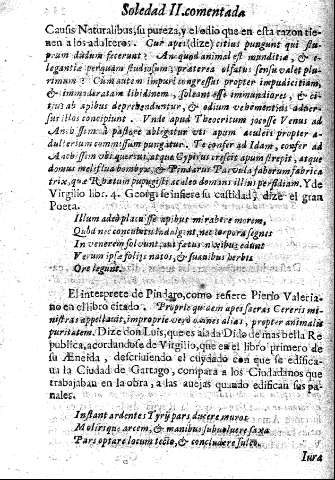 Soledad II. comentada
Causis Naturalibus, su pureza, y el odio que en esta razon tie-
nen a los adulteros. Cur apes (dize) citius pungunt qui stu-
prum dudum fecerunt? An quod animal est munditiæ, & e-
legantiæ perquàm studiosum; præterea olfatus sensu valet plu-
rimum? Cum autem impuri congressus propter impudicitiam,
& immoderatam libidinem, soleant esse immundiores, &
ab apibus deprehenduntur, & odium vehementius adver-
sus illos concipiunt. Vnde apud Theocritum jocosse Venus ad
Anchissem à pastore ablegatur vti apum aculeis propter a-
dulterium commissum pungatur. Te confer ad Idam, confer ad
Anchissen obi quercus, atque Cypirus crescit apum strepit, atque
domus melislua bombyx, & Pindarus Parvula faborum fabrica
trix, que Rhætum pupugisti aculeo domans illius perfidiam. Y de
Virgilio libr. 4. Georgi se infiere su castidad; dize el gran
Poeta.
Illum adeo placuisse apibus mirabere morem,
Quòd nec concubitu indulgent, nec corpora segnes
In venerem solvunt, aut fætus nixibus edunt
Verum ipsæ folijs natos, & suavibus herbis
Ore legunt.
El interprete de Pindaro, como refiere Pierio Valeria-
no en el libro citado. Propriè quidem apes sacras Cereris mi-
nistras appellavit, impropriè verò omnes alias, propter animalis
puritatem. Dize don Luis, que es alada Dido de mas bella Re
publica, acordandose de Virgilio, que en el libro primero de
su Æneida, descriviendo el cuydado con que se edifica-
ua la Ciudad de Cartago, compara a los Ciudadanos que
trabajaban en la obra, a las auejas quando edifican sus pa-
nales.
Instant ardentes Tyrij pars ducere muros
Molirique arcem, & manibus subvoluere saxa
Pars optare locum tecto, & concludere sulco.
Iura